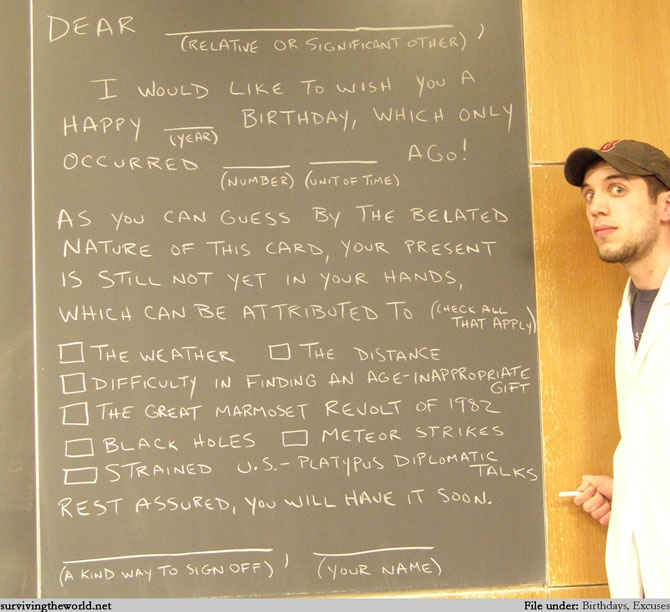 DEAR ____________,
(RELATIVE OR SIGNIFICANT OTHER)
I WOULD LIKE TO WISH YOU A
HAPPY ____ BIRTHDAY, WHICH ONLY
(YEAR)
OCCURRED ____ ____ AGO!
(NUMBER) (UNIT OF TIME)
AS YOU CAN GUESS BY THE BELATED
NATURE OF THIS CARD, YOUR PRESENT
IS STILL NOT YET IN YOUR HANDS,
WHICH CAN BE ATTRIBUTED TO (CHECK ALL
THAT APPLY)
☐ THE WEATHER ☐ THE DISTANCE
☐ DIFFICULTY IN FINDING AN AGE-INAPPROPRIATE
GIFT
☐ THE GREAT MARMOSET REVOLT OF 1982
☐ BLACK HOLES ☐ METEOR STRIKES
☐ STRAINED U.S.-PLATYPUS DIPLOMATIC
TALKS
REST ASSURED, YOU WILL HAVE IT SOON.
____________, ________
(A KIND WAY TO SIGN OFF) (YOUR NAME)
survivingtheworld.net File under: Birthdays, Excuses